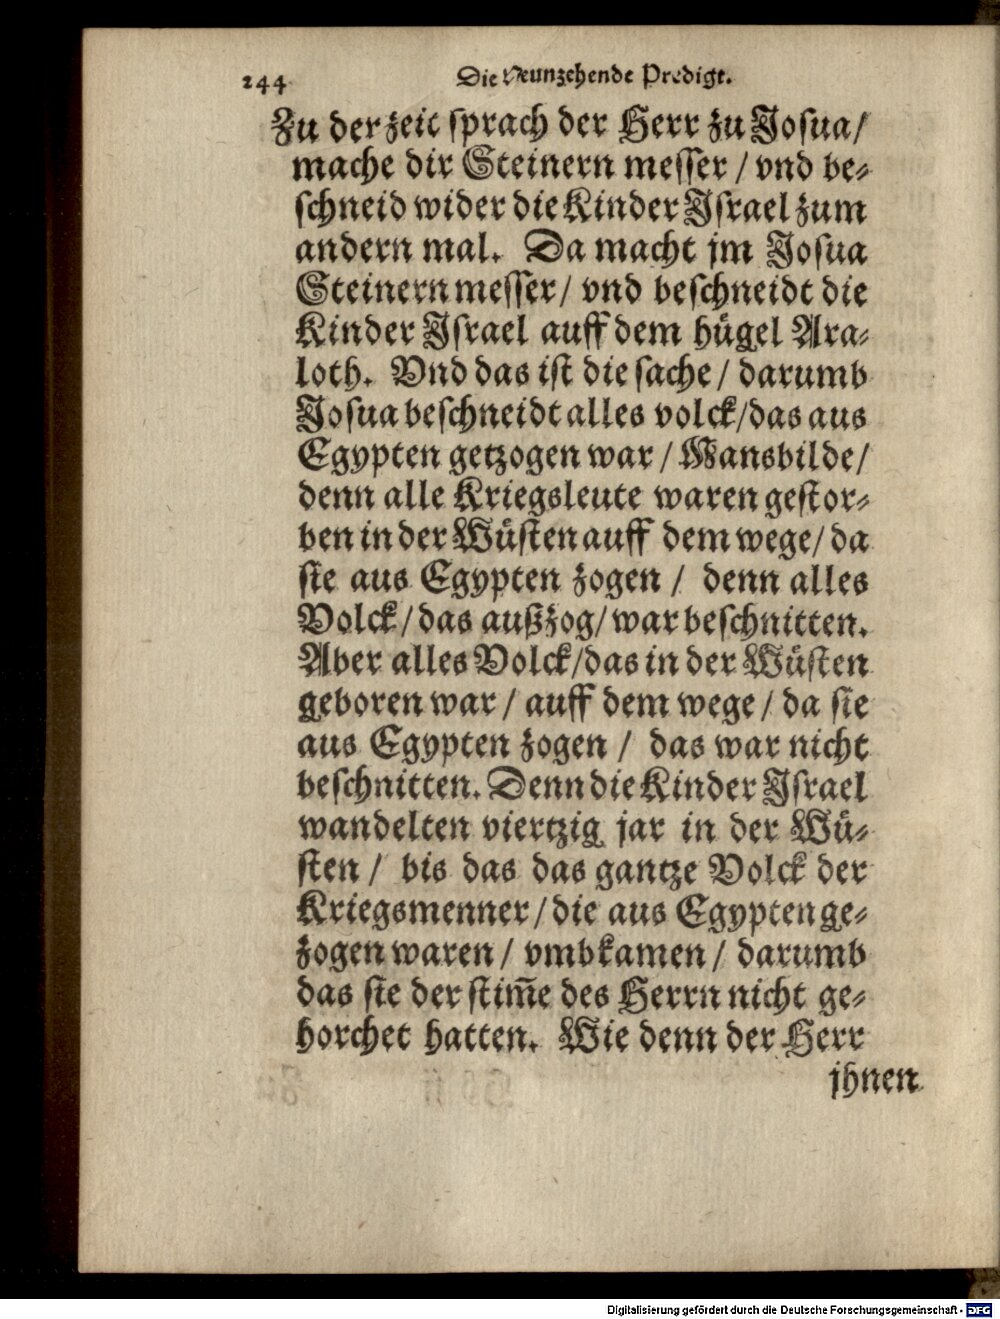 244 Die Neunzehende Predigt.
Zu der zeit sprach der Herr zu Josua/
mache dir Steinern messer / vnd be-
schneid wider die Kinder Israel zum
andern mal. Da macht jm Josua
Steinern messer/ vnd beschneidt die
Kinder Israel auff dem hügel Ara-
loth. Vnd das ist die sache / darumb
Josua beschneidt alles volck/das aus
Egypten getzogen war / Mansbilde/
denn alle Kriegsleute waren gestor-
ben in der Wüsten auff dem wege/ da
sie aus Egypten zogen / denn alles
Volck/ das außzog/ war beschnitten.
Aber alles Volck/das in der Wüsten
geboren war / auff dem wege / da sie
aus Egypten zogen / das war nicht
beschnitten. Denn die Kinder Israel
wandelten viertzig jar in der Wü-
sten / bis das das gantze Volck der
Kriegsmenner / die aus Egypten ge-
zogen waren / vmbkamen / darumb
das sie der stim̄e des Herrn nicht ge-
horchet hatten. Wie denn der Herr
jhnen
Digitalisierung gefördert durch die Deutsche Forschungsgemeinschaft - DFG